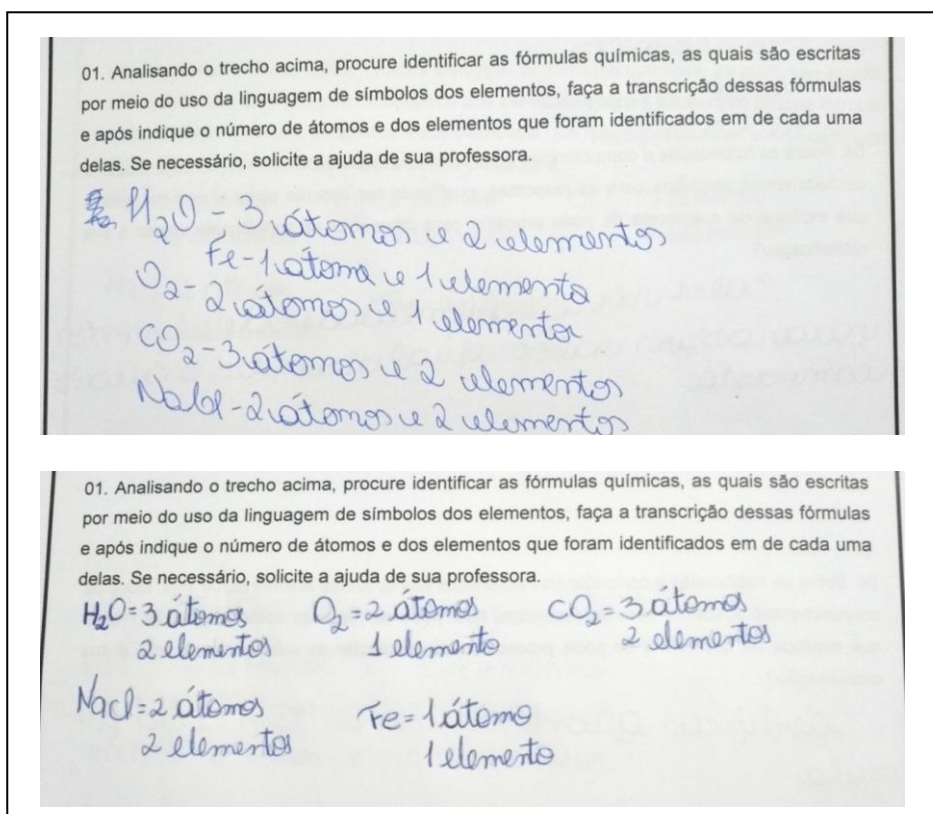 01. Analisando o trecho acima, procure identificar as fórmulas químicas, as quais são escritas
por meio do uso da linguagem de símbolos dos elementos, faça a transcrição dessas fórmulas
e após indique o número de átomos e dos elementos que foram identificados em de cada uma
delas. Se necessário, solicite a ajuda de sua professora.
H₂O - 3 átomos e 2 elementos
Fe - 1 átomo e 1 elemento
O₂ - 2 átomos e 1 elemento
CO₂ - 3 átomos e 2 elementos
NaCl - 2 átomos e 2 elementos
01. Analisando o trecho acima, procure identificar as fórmulas químicas, as quais são escritas
por meio do uso da linguagem de símbolos dos elementos, faça a transcrição dessas fórmulas
e após indique o número de átomos e dos elementos que foram identificados em de cada uma
delas. Se necessário, solicite a ajuda de sua professora.
H₂O = 3 átomos
2 elementos
O₂ = 2 átomos
1 elemento
CO₂ = 3 átomos
2 elementos
NaCl = 2 átomos
2 elementos
Fe = 1 átomo
1 elemento